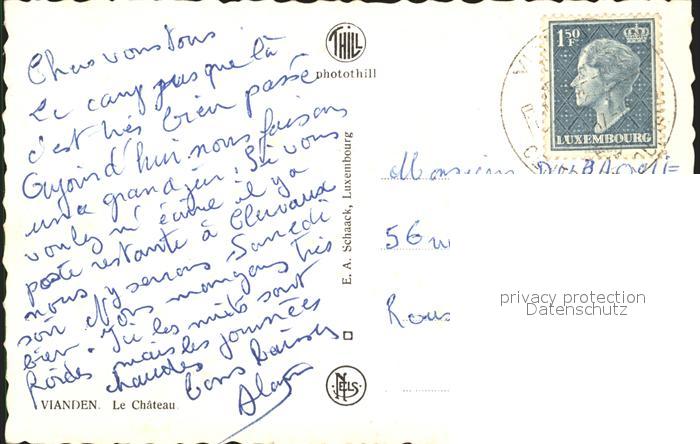 Chers vous tous
Le camp jusque là
s'est très bien passé
Aujourd'hui nous faisons
un grand jeu. Si vous
voulez m'écrire il y a
poste restante à Clervaux
nous y serons Samedi
soir. Nous mangeons très
bien. Ici les nuits sont
froides mais les journées
chaudes
bons baisers
Alain
VIANDEN. Le Château.
THILL
photothill
E. A. Schaack, Luxembourg
NELS
1F50
LUXEMBOURG
Monsieur
56
privacy protection
Datenschutz